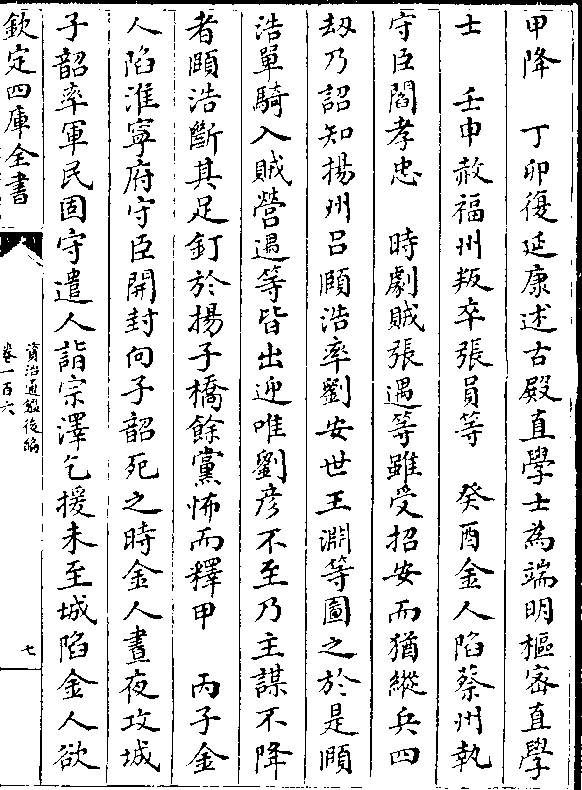 甲降　丁卯復延康述古殿直學士為端明樞密直學
士　壬申赦福州叛卒張員等　癸酉金人陷蔡州執
守臣閻孝忠　時劇賊張遇等雖受招安而猶縱兵四
劫乃詔知揚州吕頤浩率劉安世王淵等圖之於是頤
浩單騎入賊營遇等皆出迎唯劉彦不至乃主謀不降
者頤浩斷其足釘於揚子橋餘黨怖而釋甲　丙子金
人陷淮寧府守臣開封向子韶死之時金人晝夜攻城
子韶率軍民固守遣人詣宗澤乞援未至城陷金人欲
欽定四庫全書
資治通鑑後編
卷一百六
七